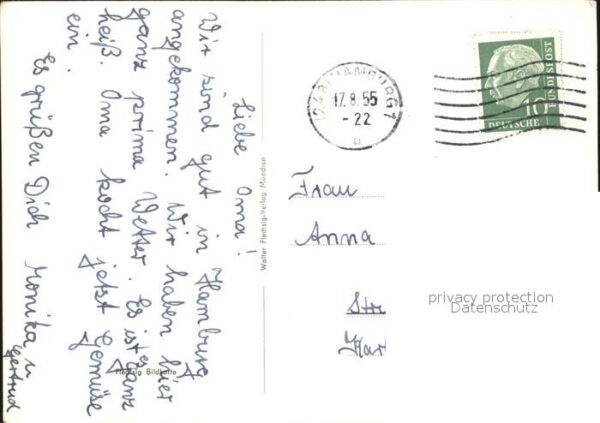 Liebe Oma!
Wir sind gut in Hamburg
angekommen. Wir haben hier
ganz prima Wetter. Es ist ganz
heiß. Oma kocht jetzt Gemüse
ein.
Es grüßen Dich Monika u
Gertrud
Flechsig Bildkarte
Walter Flechsig-Verlag München
(24a) HAMBURG 1
17.8.55
-22
u
10
DEUTSCHE
BUNDESPOST
Frau
Anna
Str
privacy protection
Datenschutz